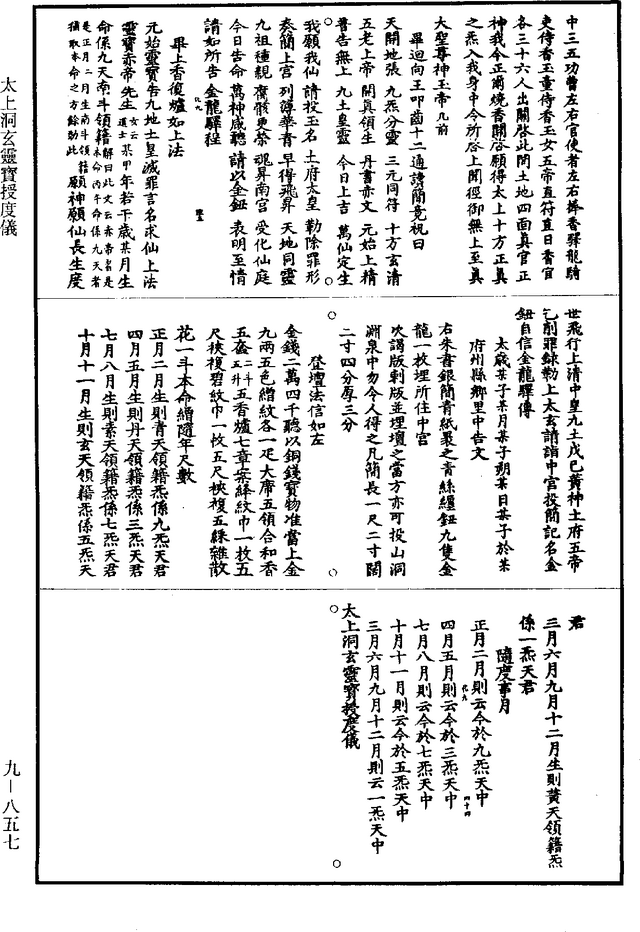 中三五功曹左右官使者左右捧香驛龍騎
吏侍香玉童侍香玉女五帝直符直日香官
各三十六人出關啓此間土地四面真官正
神我今正爾燒香關啓願得太上十方正真
之炁入我身中令所啓上聞徑御無上至真
大聖尊神玉帝几前
畢迴向王叩齒十二通讀簡竟祝曰
天開地張 九炁分靈 三元同符 十方玄清
五老上帝 開真領生 丹書赤文 元始上精
普告無上 九土皇靈 今日上吉 萬仙定生
我願我仙 請投玉名 土府太皇 勒除罪形
奏簡上宮 列簿華青 早得飛昇 天地同靈
九祖種親 腐骸更榮 魂昇南宮 受化仙庭
今日告命 萬神咸聽 請以金鈕 表明至情
請如所告 金龍驛程
畢上香復爐如上法
元始靈寶告九地土皇滅罪言名求仙上法
靈寶赤帝先生女云道士某甲年若干歲某月生
命係九天南斗領籍解曰此文云赤帝名是本命丙午命係九天者
是正月二月生南斗領籍攝取本命之方餘効此願神願仙長生度
世飛行上清中皇九土戊己黃神土府五帝
乞削罪錄勒上太玄請詣中宮投簡記名金
鈕自信金龍驛傳
太歲某子某月某子朔某日某子於某
府州縣鄉里中告文
右朱書銀簡青紙裹之青絲纏鈕九隻金
龍一枚埋所住中宮
次謁版刺版並埋壇之當方亦可投山洞
淵泉中勿令人得之凡簡長一尺二寸闊
二寸四分厚三分
登壇法信如左
金錢二萬四千聽以銅錢寶物准當上金
九兩五色繒紋各一疋大席五領合和香
五斗五香爐七章案絳紋巾一枚五
尺挾複碧紋巾一枚五尺挾複五綵雜散
花一斗本命繒隨年尺數
正月二月生則青天領籍炁係九炁天君
四月五月生則丹天領籍炁係三炁天君
七月八月生則素天領籍炁係七炁天君
十月十一月生則玄天領籍炁係五炁天
君
三月六月九月十二月生則黃天領籍炁
係一炁天君
隨度事月
正月二月則云今於九炁天中
四月五月則云今於三炁天中
七月八月則云今於七炁天中
十月十一月則云今於五炁天中
三月六月九月十二月則云一炁天中
太上洞玄靈寶授度儀
太上洞玄靈寶授度儀
九－八五七